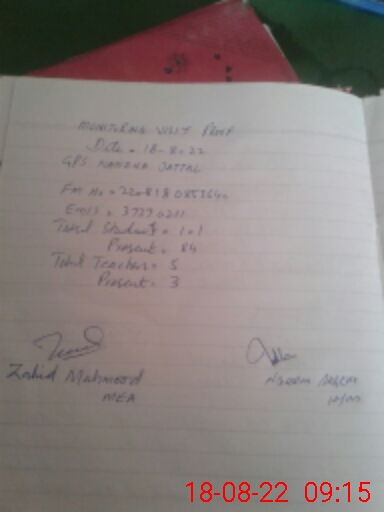 MONITORING VISIT PROOF
Date = 18-8-22
GPS NANDNA JATTAL
Emis = 37270211
Total Students = 101
Present = 84
Total Teachers = 5
Present = 3
Zahid Mahmood
MEA
18-08-22 09:15